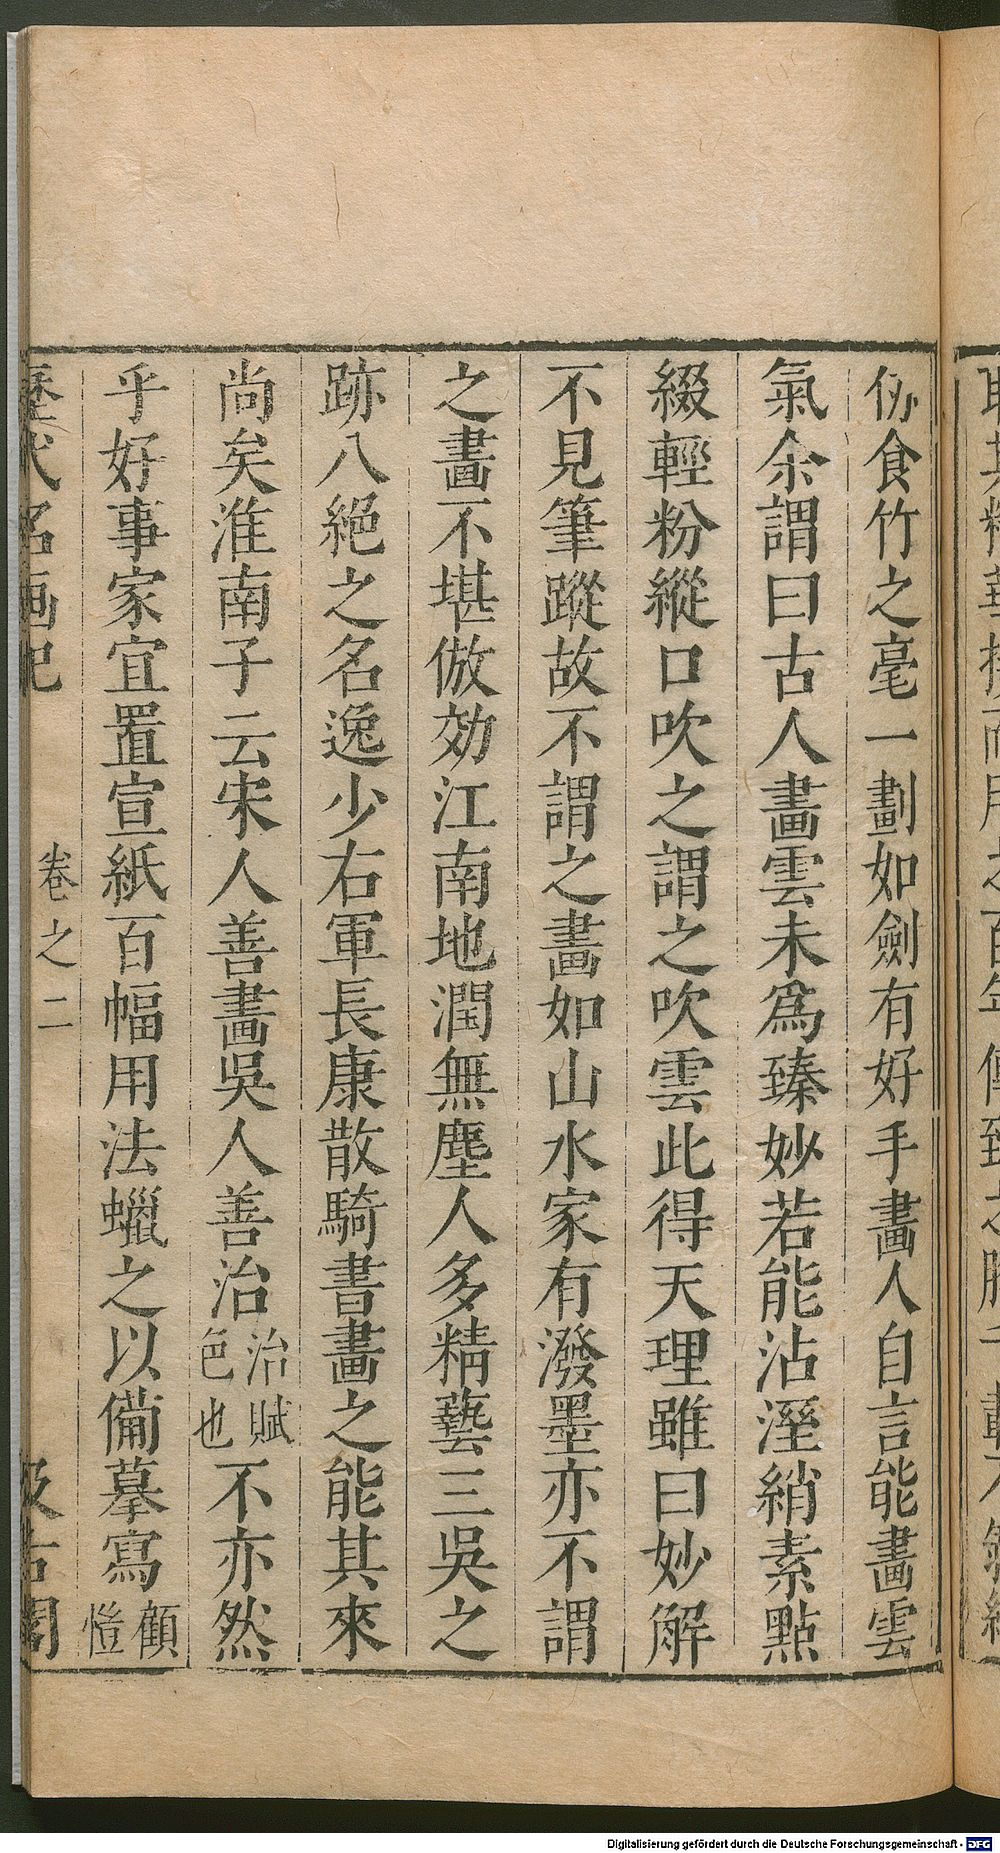 仞食竹之毫一劃如劍有好手畫人自言能畫雲
氣余謂曰古人畫雲未爲臻妙若能沾溼綃素點
綴輕粉縱口吹之謂之吹雲此得天理雖曰妙解
不見筆蹤故不謂之畫如山水家有潑墨亦不謂
之畫不堪倣効江南地潤無塵人多精藝三吳之
跡八絕之名逸少右軍長康散騎書畫之能其來
尚矣淮南子云宋人善畫吳人善治治賦色也不亦然
乎好事家宜置宣紙百幅用法蠟之以備摹寫顧愷
歷代名画記 卷之二 汲古閣
Digitalisierung gefördert durch die Deutsche Forschungsgemeinschaft - DFG